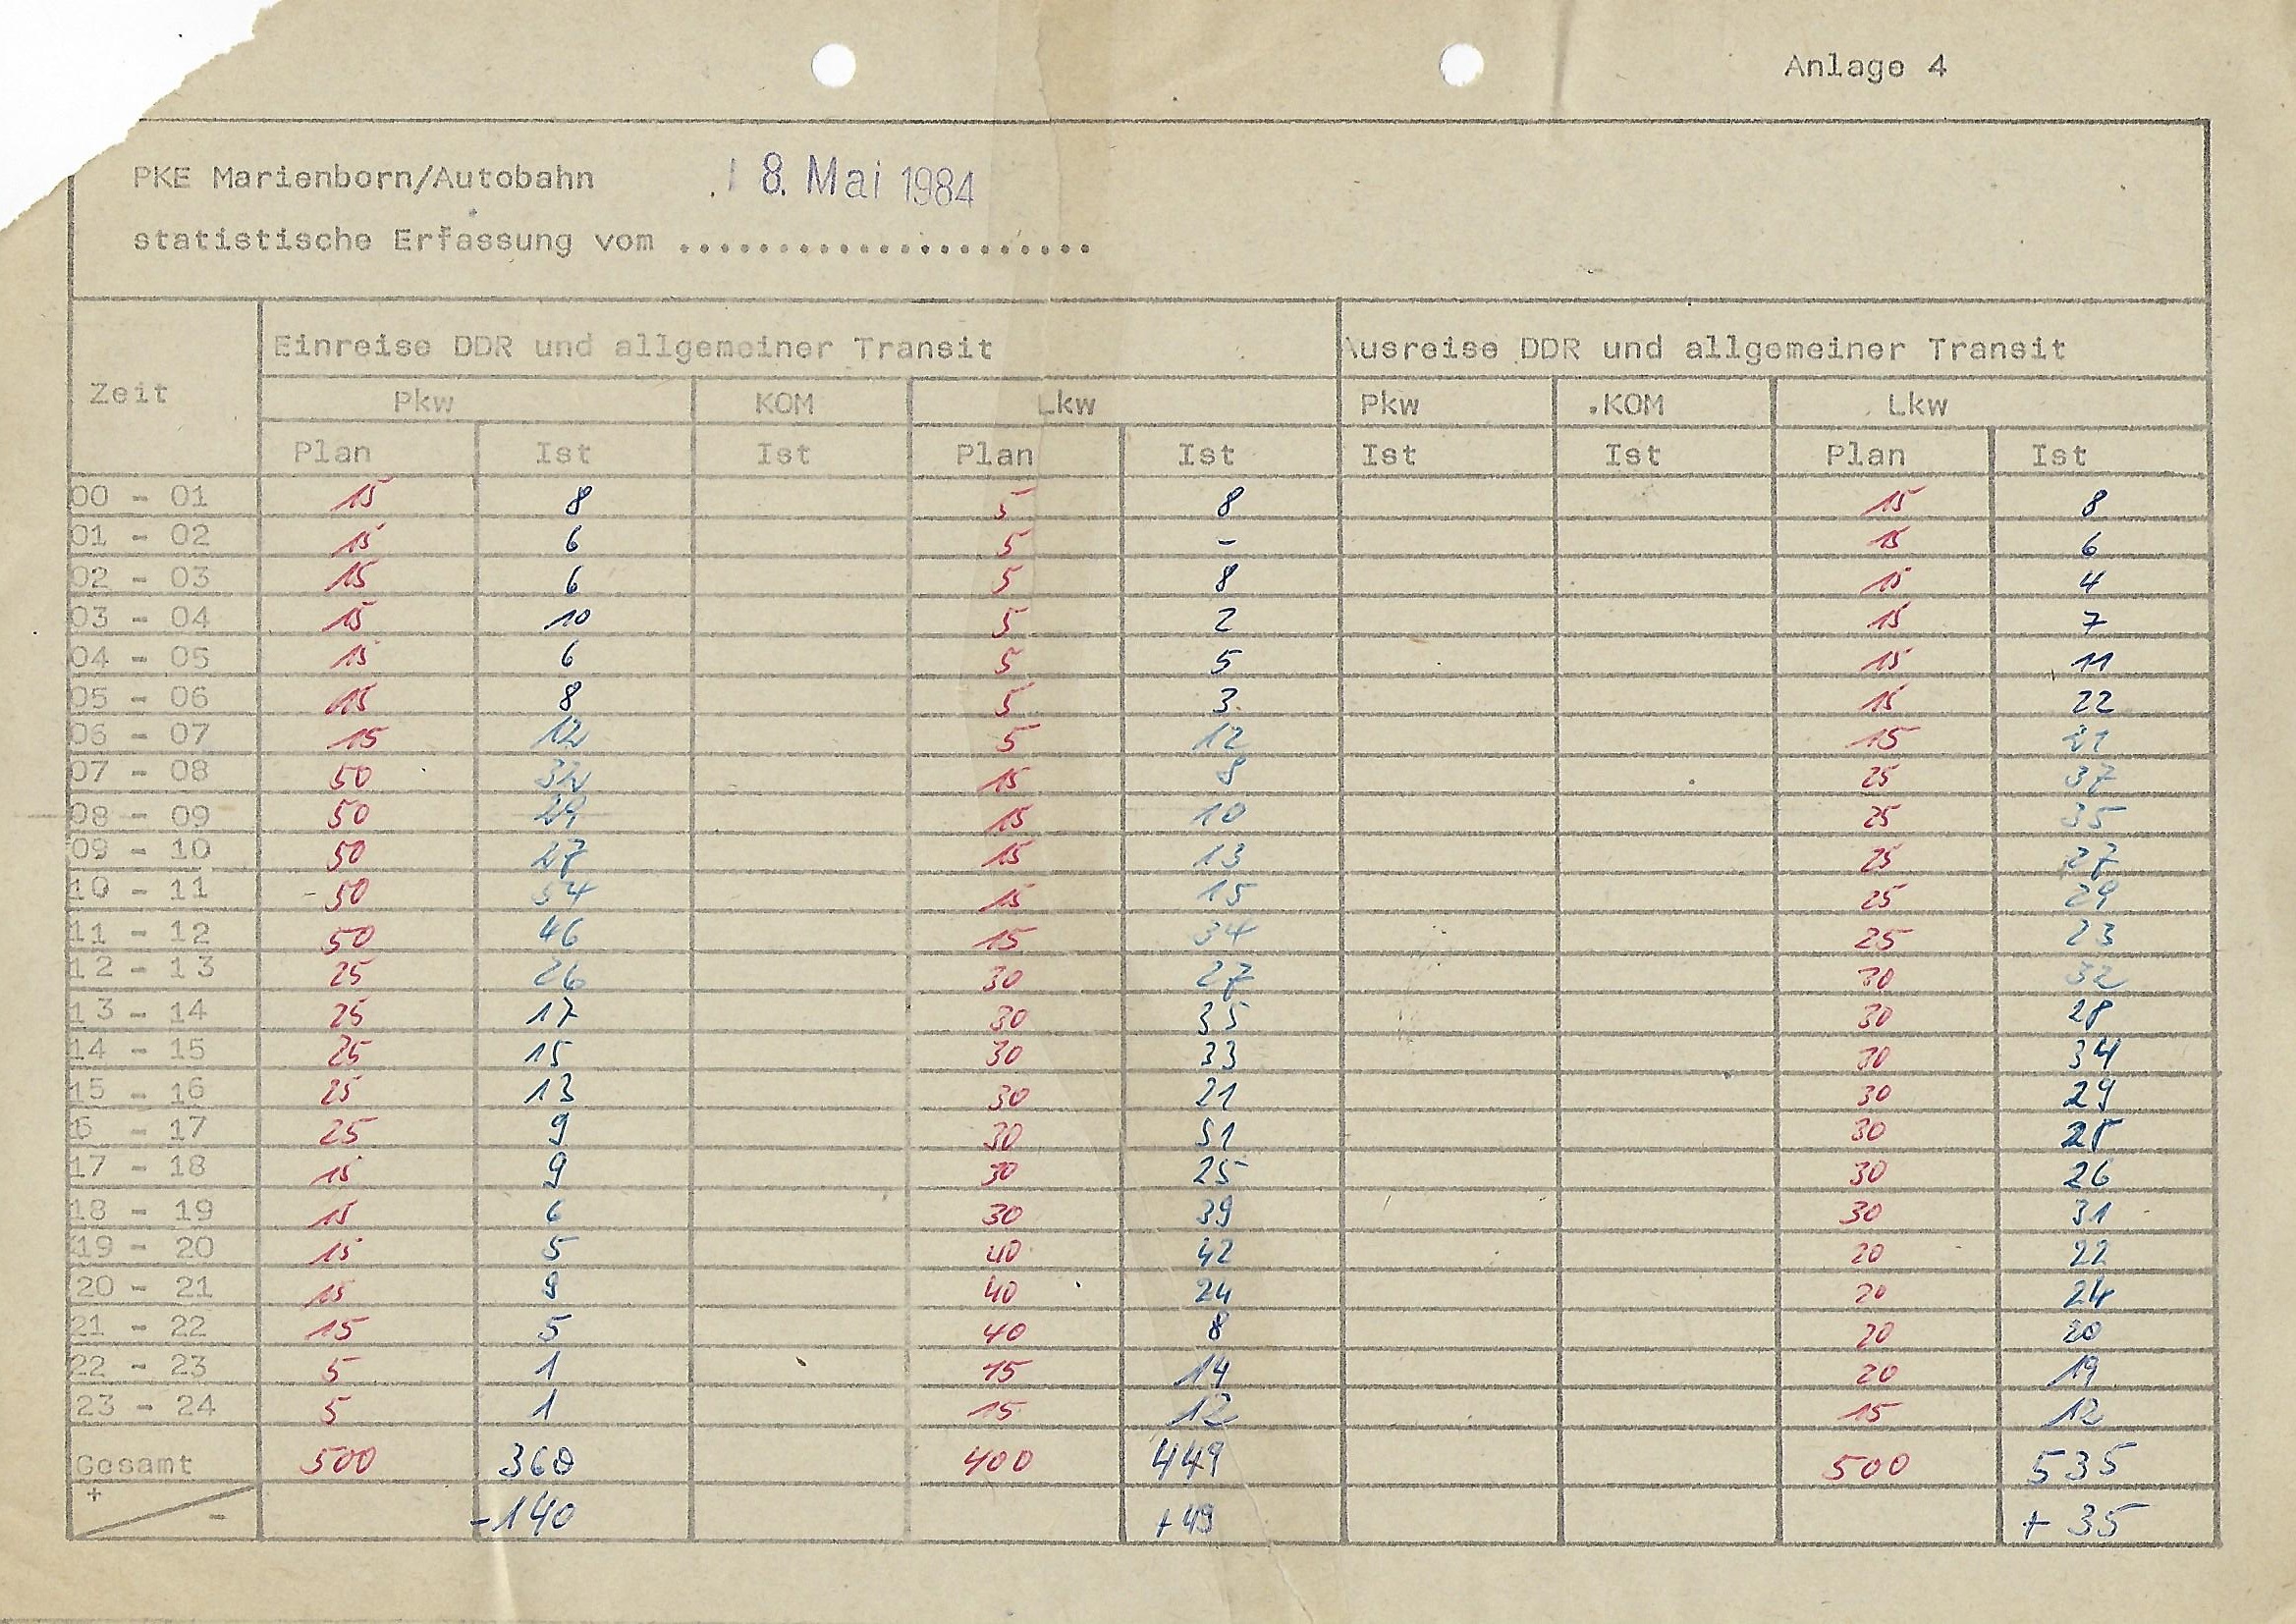 Anlage 4
PKE Marienborn/Autobahn 18. Mai 1984
statistische Erfassung vom .....................
Zeit Einreise DDR und allgemeiner Transit Ausreise DDR und allgemeiner Transit
Pkw KOM Lkw Pkw KOM Lkw
Plan Ist Ist Plan Ist Ist Ist Plan Ist
00 - 01 15 8 5 8 15 8
01 - 02 15 6 5 - 15 6
02 - 03 15 6 5 8 15 4
03 - 04 15 10 5 2 15 7
04 - 05 15 6 5 5 15 11
05 - 06 15 8 5 3 15 22
06 - 07 15 12 5 12 15 21
07 - 08 50 32 15 8 25 37
08 - 09 50 29 15 10 25 35
09 - 10 50 27 15 13 25 27
10 - 11 50 54 15 15 25 29
11 - 12 50 46 15 34 25 23
12 - 13 25 26 30 27 30 32
13 - 14 25 17 30 35 30 28
14 - 15 25 15 30 33 30 34
15 - 16 25 13 30 21 30 29
6 - 17 25 9 30 51 30 28
17 - 18 15 9 30 25 30 26
18 - 19 15 6 30 39 30 31
19 - 20 15 5 40 42 20 22
20 - 21 15 9 40 24 20 24
21 - 22 15 5 40 8 20 20
22 - 23 5 1 15 14 20 19
23 - 24 5 1 15 12 15 12
Gesamt 500 360 400 449 500 535
+ - -140 +49 + 35